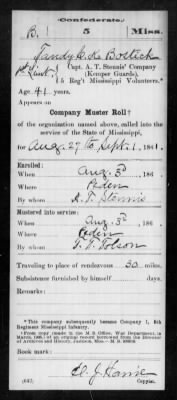 (Confederate.)
B. | 5 | Miss.
Tandy K. Bostick
1st Lieut., Capt. A. T. Stennis' Company
(Kemper Guards),
5 Reg't Mississippi Volunteers.*
Age 41 years.
Appears on
Company Muster Roll†
of the organization named above, called into the
service of the State of Mississippi,
for Aug. 27 to Sept. 1, 1861.
Enrolled:
When Aug. 3d, 186 .
Where
By whom A. T. Stennis
Mustered into service:
When Aug. 3d, 186 .
Where
By whom T. T. Tolson
Traveling to place of rendezvous 30 miles.
Subsistence furnished by himself days.
Remarks:
*This company subsequently became Company I, 5th
Regiment Mississippi Infantry.
†From copy (made in the M. S. Office, War Department, in
March, 1908,) of an original record borrowed from the Director
of Archives and History, Jackson, Miss.
Book mark:
(642)
Copyist.